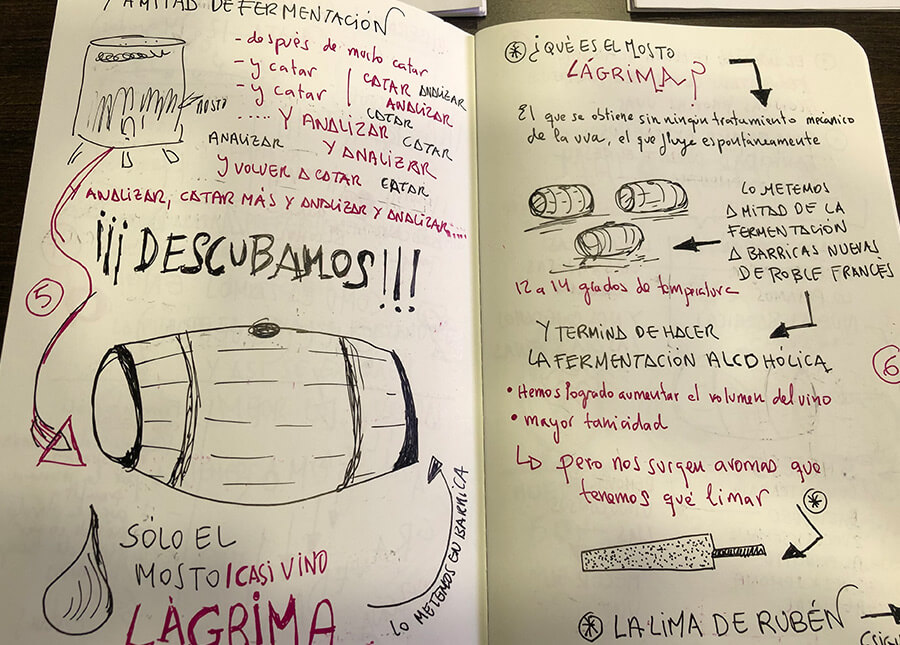 Y A MITAD DE FERMENTACIÓN
- después de mosto catar
- y catar
- y catar
CATAR ANALIZAR
ANALIZAR
MOSTO
CATAR
..... Y ANALIZAR
ANALIZAR
Y ANALIZAR
CATAR
Y VOLVER A CATAR
CATAR
ANALIZAR, CATAR MÁS Y ANALIZAR Y ANALIZAR....
¡¡¡DESCUBAMOS!!!
5
SÓLO EL
MOSTO/CASI VINO
LÀGRIMA
LO METEMOS EN BARRICA
* ¿QUÉ ES EL MOSTO
LÁGRIMA?
El que se obtiene sin ningún tratamiento mecánico
de la uva, el que fluye espontáneamente
LO METEMOS
A MITAD DE LA
FERMENTACIÓN
A BARRICAS NUEVAS
DE ROBLE FRANCÈS
12 a 14 grados de temperatura
Y TERMINA DE HACER
LA FERMENTACIÓN ALCOHÓLICA
6
• Hemos logrado aumentar el volumen del vino
• mayor tanicidad
↳ pero nos surgen aromas que
tenemos qué limar *
* LA LIMA DE RUBÉN